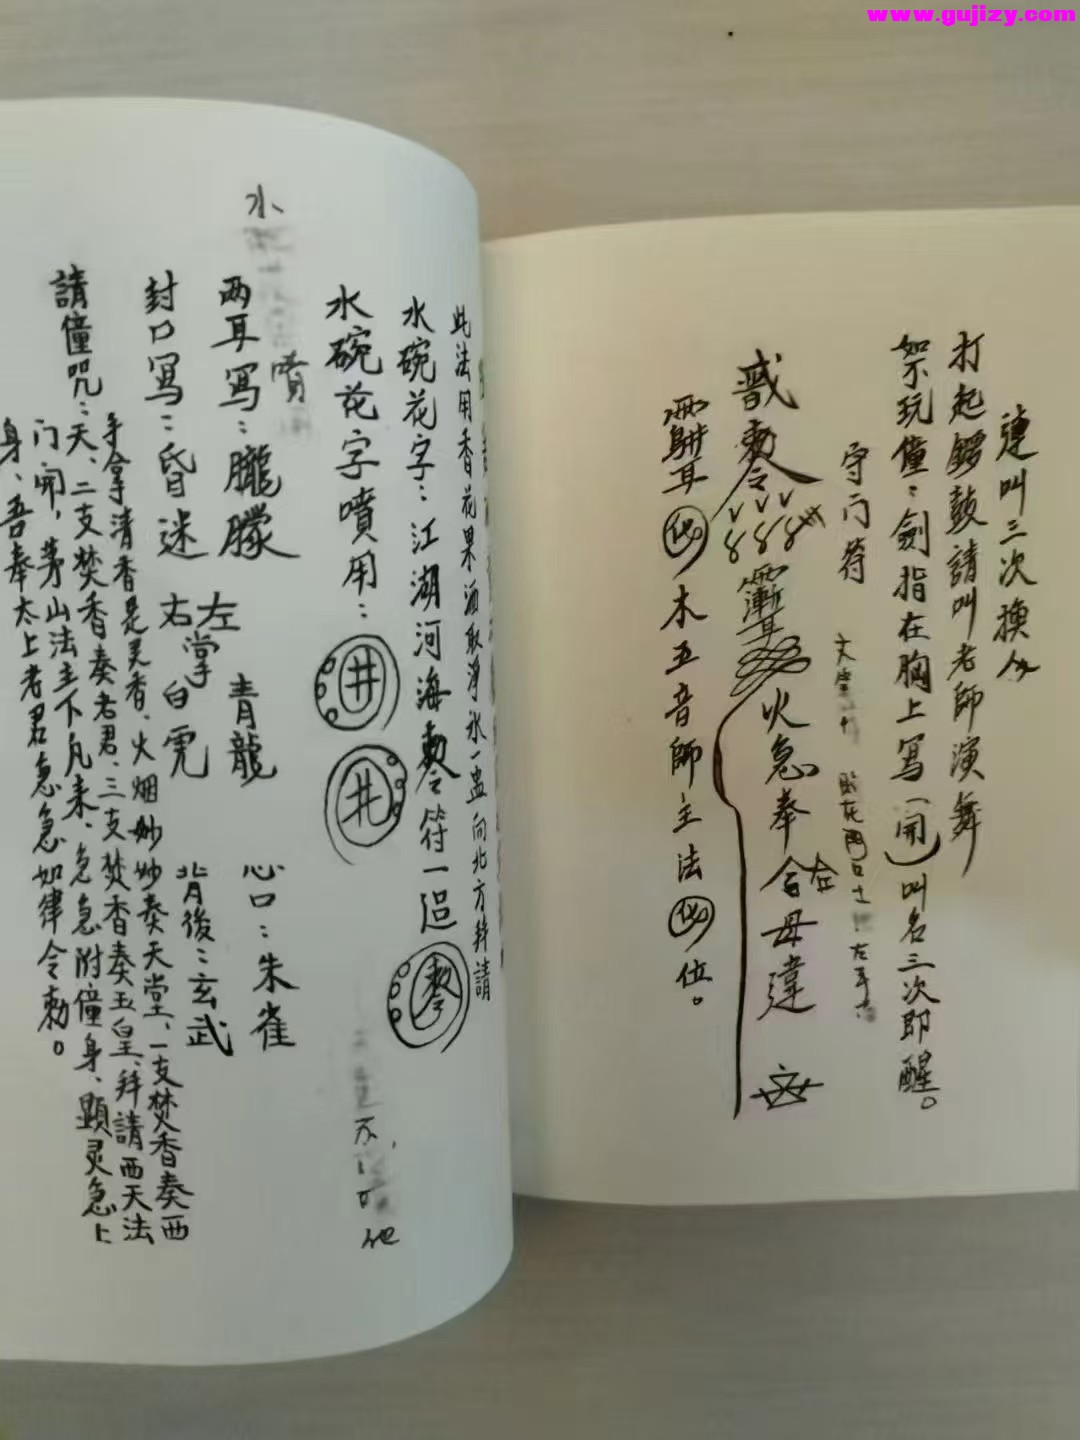 www.gujizy.com
連叫三次換人
打起鑼鼓請叫老師演舞
如不玩僮：劍指在胸上写（開）叫名三次即醒。
守门符
左手
勅令
火急奉
合
左
母違
木五音師主法
位。
此法用香花果酒取淨水一盅向北方拜請
水碗花字：江湖河海勅令符一道
勅令
水碗花字噴用：
井
井
水
噴
两耳寫：朧朦
封口寫：昏迷
左
右
掌
青龍
白虎
心口：朱雀
背後：玄武
請僮咒：
手拿清香是灵香、火烟妙妙奏天堂、一支焚香奏西
天、二支焚香奏老君、三支焚香奏玉皇、拜請西天法
门開，茅山法主下凡来、急急附僮身、顯灵急上
身、吾奉太上老君急急如律令勅。